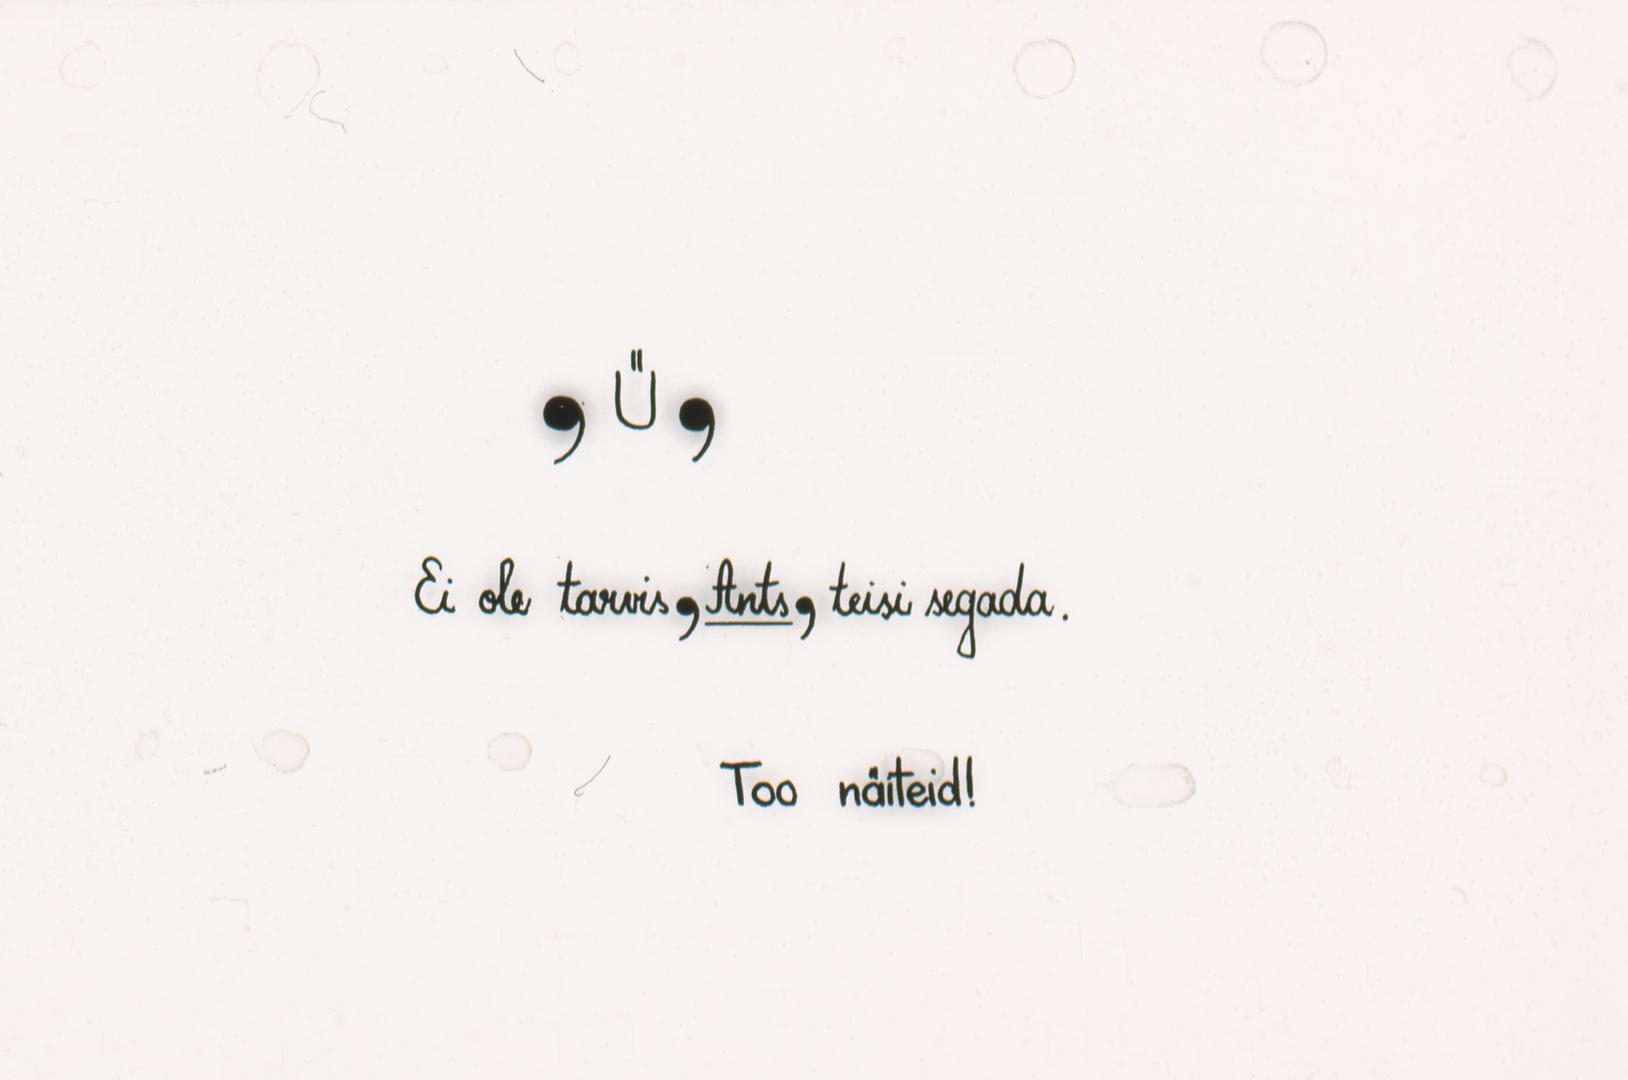 , Ü ,
Ei ole tarvis, Ants, teisi segada.
Too näiteid!